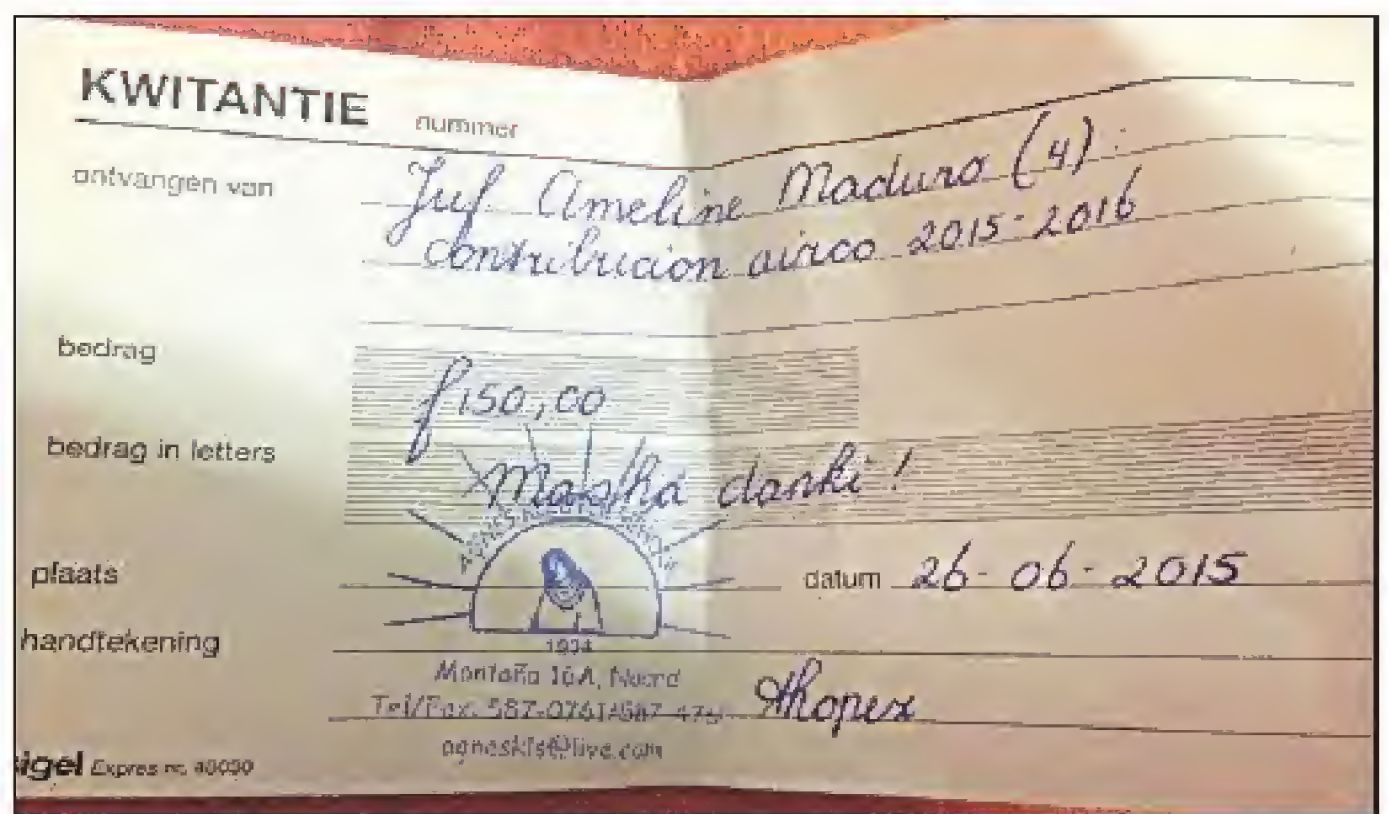 KWITANTIE nummer
ontvangen van Juf Ameline Maduro (4):
contribucion airco 2015-2016
bedrag f 150,00
bedrag in letters Masha danki!
plaats datum 26-06-2015
handtekening
1934
Montaña 16A, Noord
Tel/Fax: 587-0761
agneskls@live.com
sigel Expres nr.